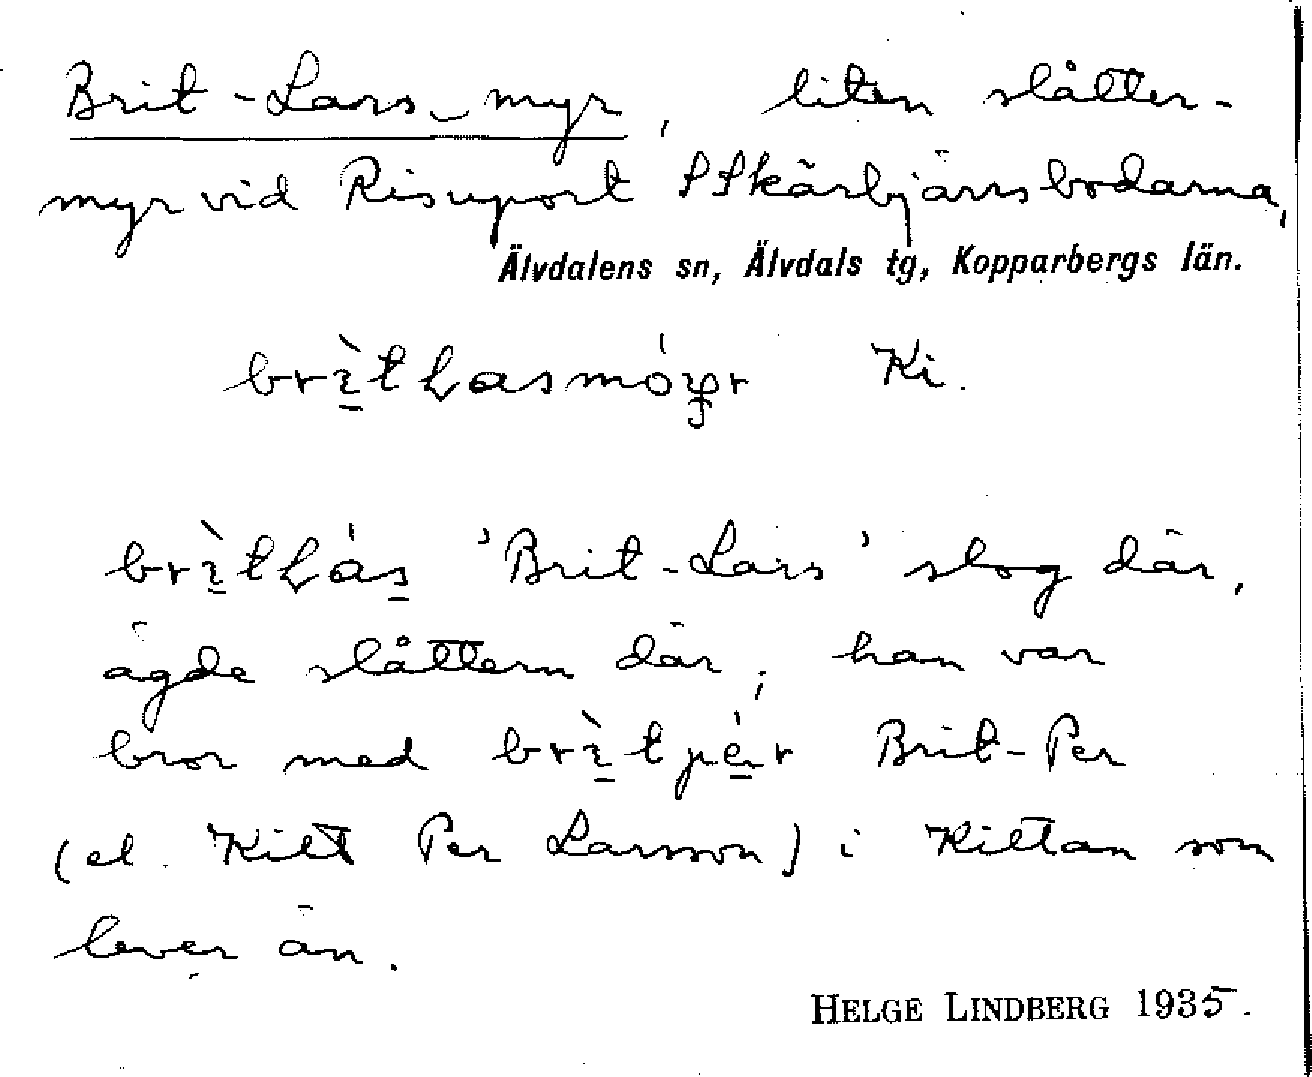 Brit-Lars_myr, liten slåtter-
myr vid Risuport SSkärbjärnsbodarna,
Älvdalens sn, Älvdals tg, Kopparbergs län.
Ki.
'Brit-Lars' slog där,
ägde slåttern där; han var
bror med Brit-Per
(el. Kilt Per Larsson) i Kiltan som
lever än.
HELGE LINDBERG 1935.